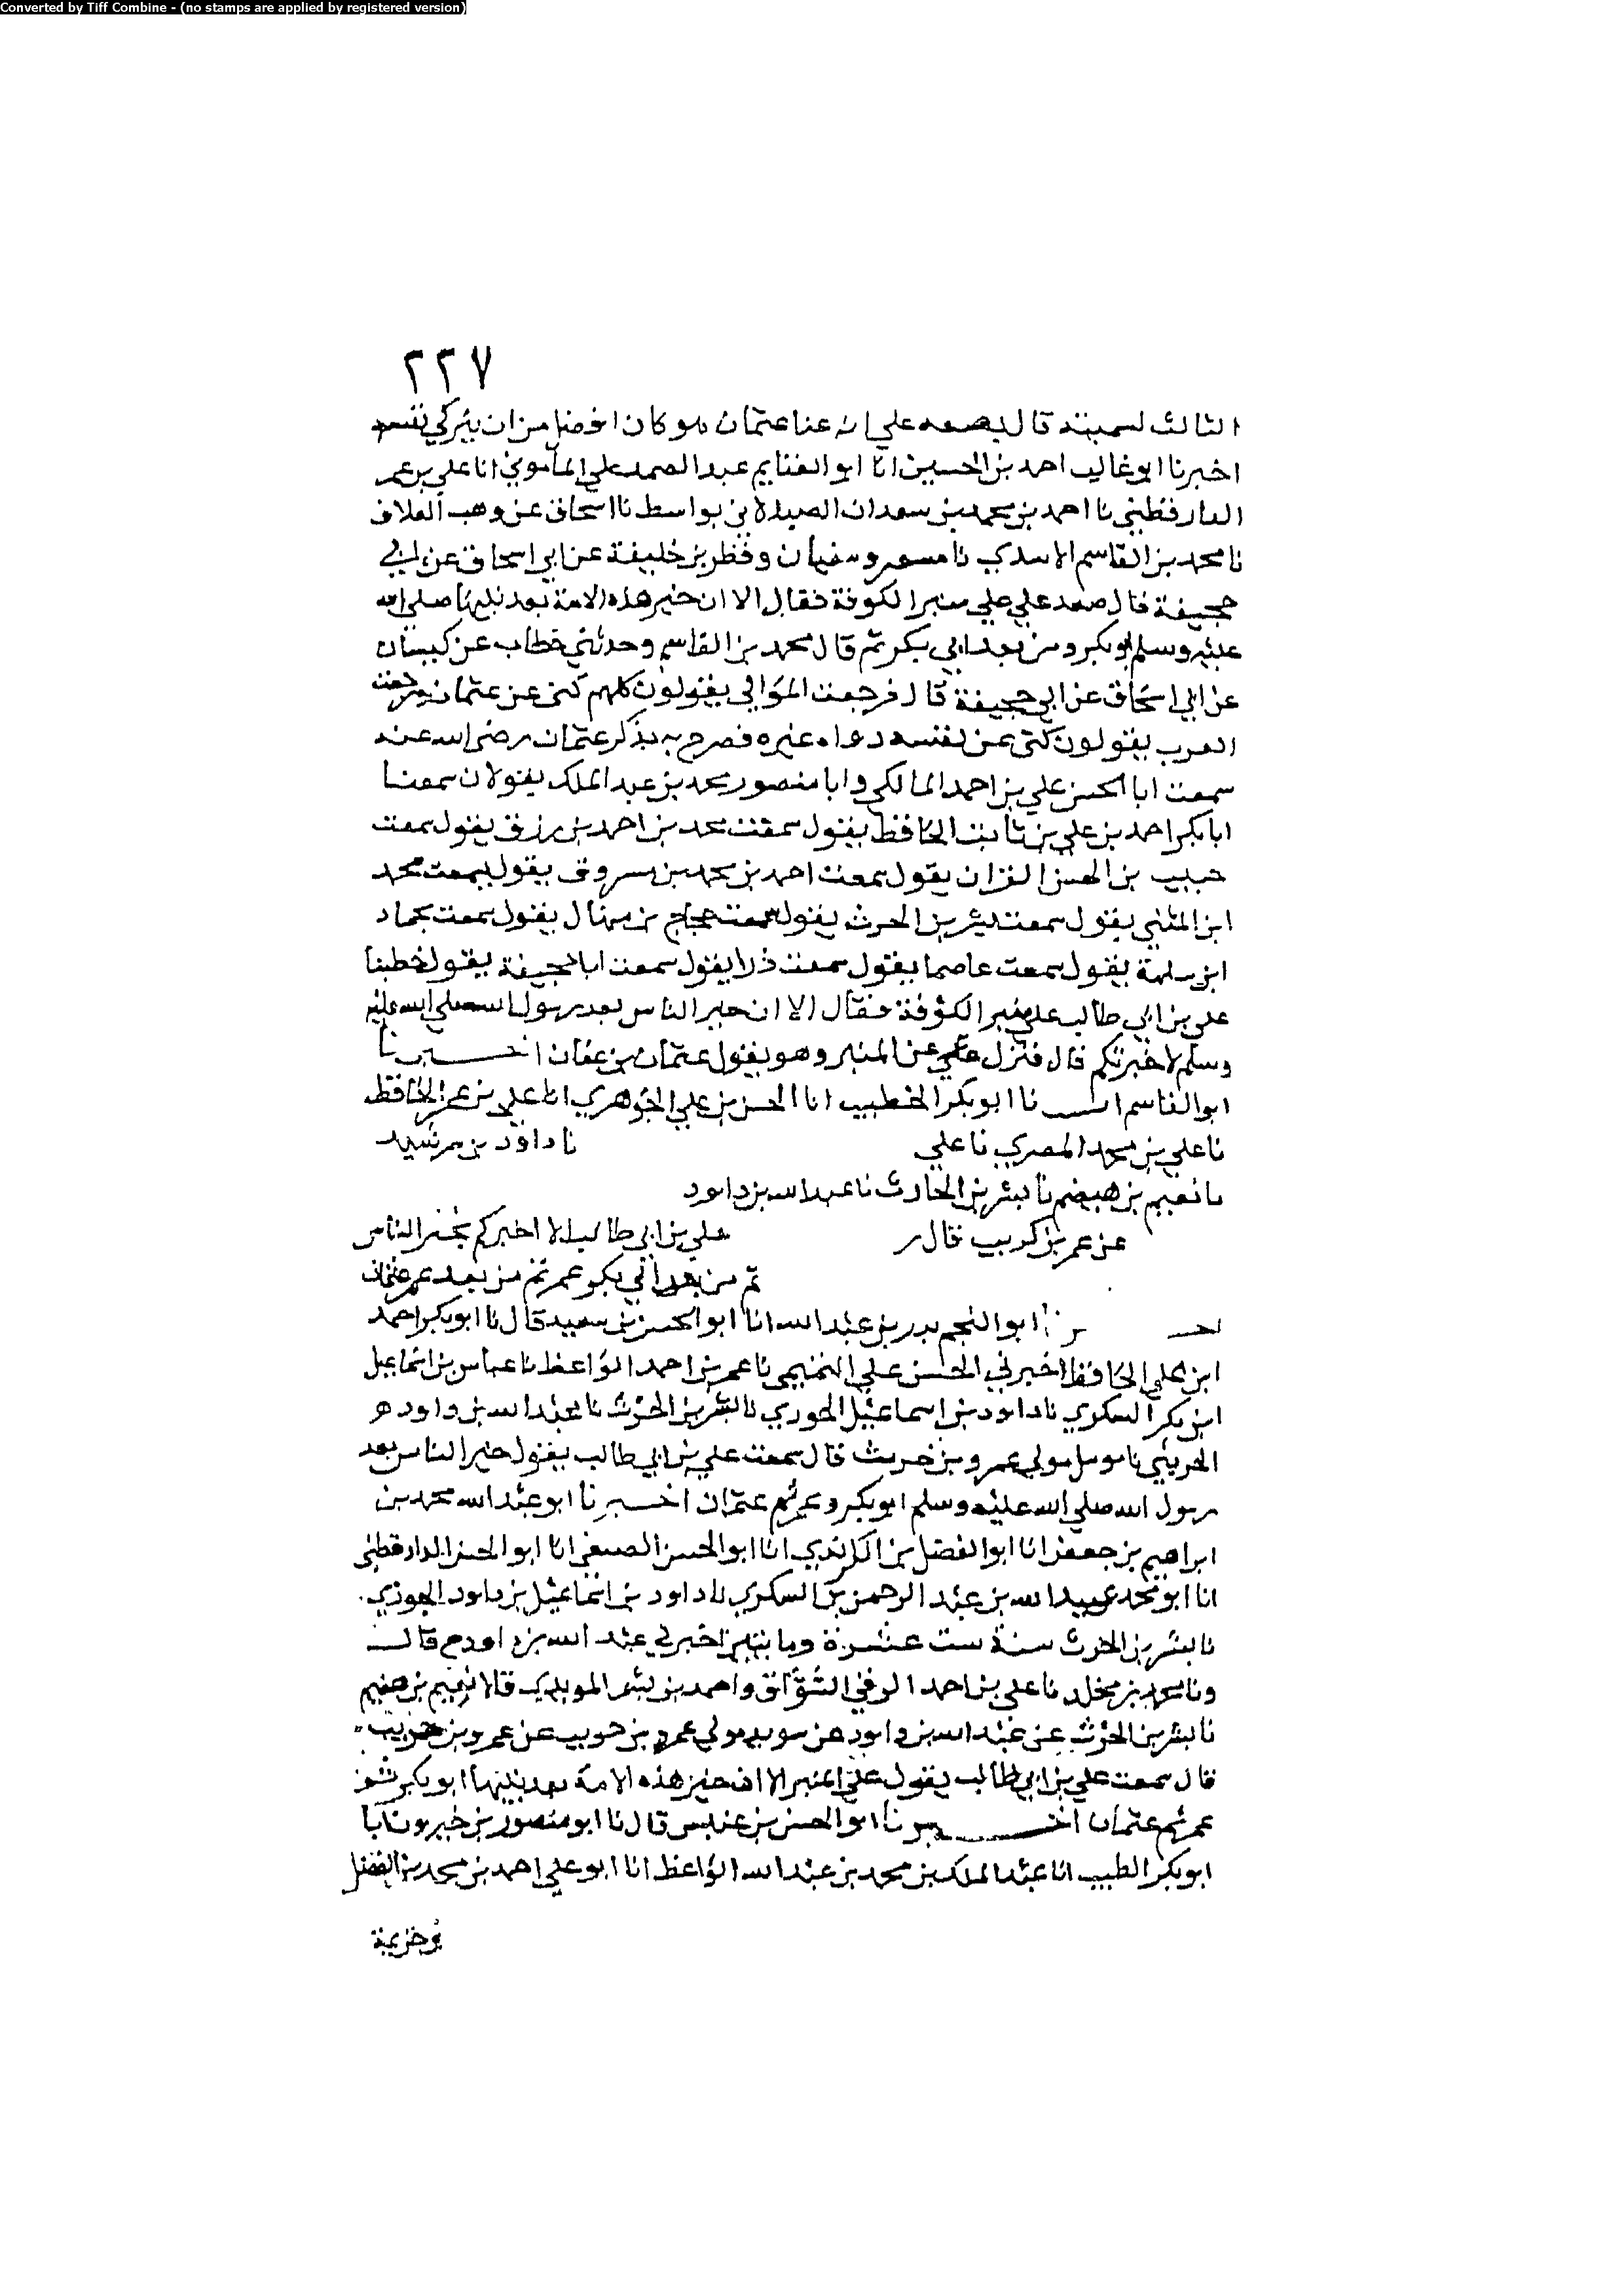 Converted by Tiff Combine - (no stamps are applied by registered version)
٢٢٧
الثالث لسميته قال علي انه عنا عثمان هو كان افضل من ان يزكي نفسه
اخبرنا ابو غالب احمد بن الحسين انا ابو الغنايم عبد الصمد علي المأموني انا علي بن عمر
الدارقطني نا احمد بن محمد بن سعدان الصيدلاني بواسط نا اسحاق عن وهب العلاف
نا محمد بن القاسم الاسدي نا مسعر وسفيان وفطر بن خليفة عن ابي اسحاق عن ابي
جحيفة قال صعد علي علي منبر الكوفة فقال الا ان خير هذه الامة بعد نبيها صلي الله
عليه وسلم ابو بكر ومن بعد ابي بكر ثم قال محمد بن القاسم وحدثني خطاب عن كيسان
عن ابي اسحاق عن ابي جحيفة قال فرجعت الموالي يقولون كلهم كنى عن عثمان ورجعت
العرب يقولون كنى عن نفسه رواه غيره فصرح به بذكر عثمان رضي الله عنه
سمعت ابا الحسن علي بن احمد المالكي وابا منصور محمد بن عبد الملك يقولان سمعنا
ابا بكر احمد بن علي بن ثابت الحافظ يقول سمعت محمد بن احمد بن رزق يقول سمعت
حبيب بن الحسن القزاز يقول سمعت احمد بن محمد بن مسروق يقول سمعت محمد
ابن المثني يقول سمعت بشر بن الحرث يقول سمعت حجاج بن منهال يقول سمعت حماد
ابن سلمة يقول سمعت عاصما يقول سمعت ذرا يقول سمعت ابا جحيفة يقول خطبنا
علي بن ابي طالب علي منبر الكوفة فقال الا ان خير الناس بعد رسول الله صلي الله عليه
وسلم لاخبرتكم قال فنزل علي عن المنبر وهو يقول عثمان بن عفان اخبرنا
ابو القاسم نا ابو بكر الخطيب انا الحسن بن علي الجوهري انا علي بن عمر الحافظ
نا علي بن محمد المصري نا علي نا داود بن رشيد
نا نعيم بن هيضم نا بشر بن الحارث نا عبد الله بن داود
عن عمر بن كريب قال علي بن ابي طالب الا اخبركم بخير الناس
ثم من بعد ابي بكر عمر ثم من بعد عمر عثمان
ابو النجم بدر بن عبد الله انا ابو الحسن بن سعيد قال نا ابو بكر احمد
ابن علي الحافظ اخبرني الحسن علي التميمي نا عمر بن احمد الواعظ نا عباس بن اسماعيل
ابن بكر السكري نا داود بن اسماعيل الجوزي نا بشر بن الحرث نا عبد الله بن داود هو
الخريبي نا مولي عمرو بن حريث قال سمعت علي بن ابي طالب يقول خير الناس بعد
رسول الله صلي الله عليه وسلم ابو بكر وعمر ثم عثمان اخبرنا ابو عبد الله محمد بن
ابراهيم بن جعفر انا ابو الفضل بن الكريدي انا ابو الحسن العتيقي انا ابو الحسن الدارقطني
انا ابو محمد عبيد الله بن عبد الرحمن بن السكري نا داود بن اسماعيل بن داود الجوزي
نا بشر بن الحرث سنة ست عشرة وما يتين اخبرني عبد الله بن داود ح قال
ونا محمد بن مخلد نا علي بن احمد الرقي السواق واحمد بن بشر قالا نا نعيم بن هيضم
نا بشر بن الحرث عن عبد الله بن داود عن سويد مولي عمرو بن حريث عن عمرو بن حريث
قال سمعت علي بن ابي طالب يقول علي المنبر الا ان خير هذه الامة بعد نبيها ابو بكر ثم
عمر ثم عثمان اخبرنا ابو الحسن بن قبيس قال نا ابو منصور بن خيرون نا با
ابو بكر الخطيب انا عبد الملك بن محمد بن عبد الله الواعظ انا ابو علي احمد بن محمد بن الفضل
بن خزيمة